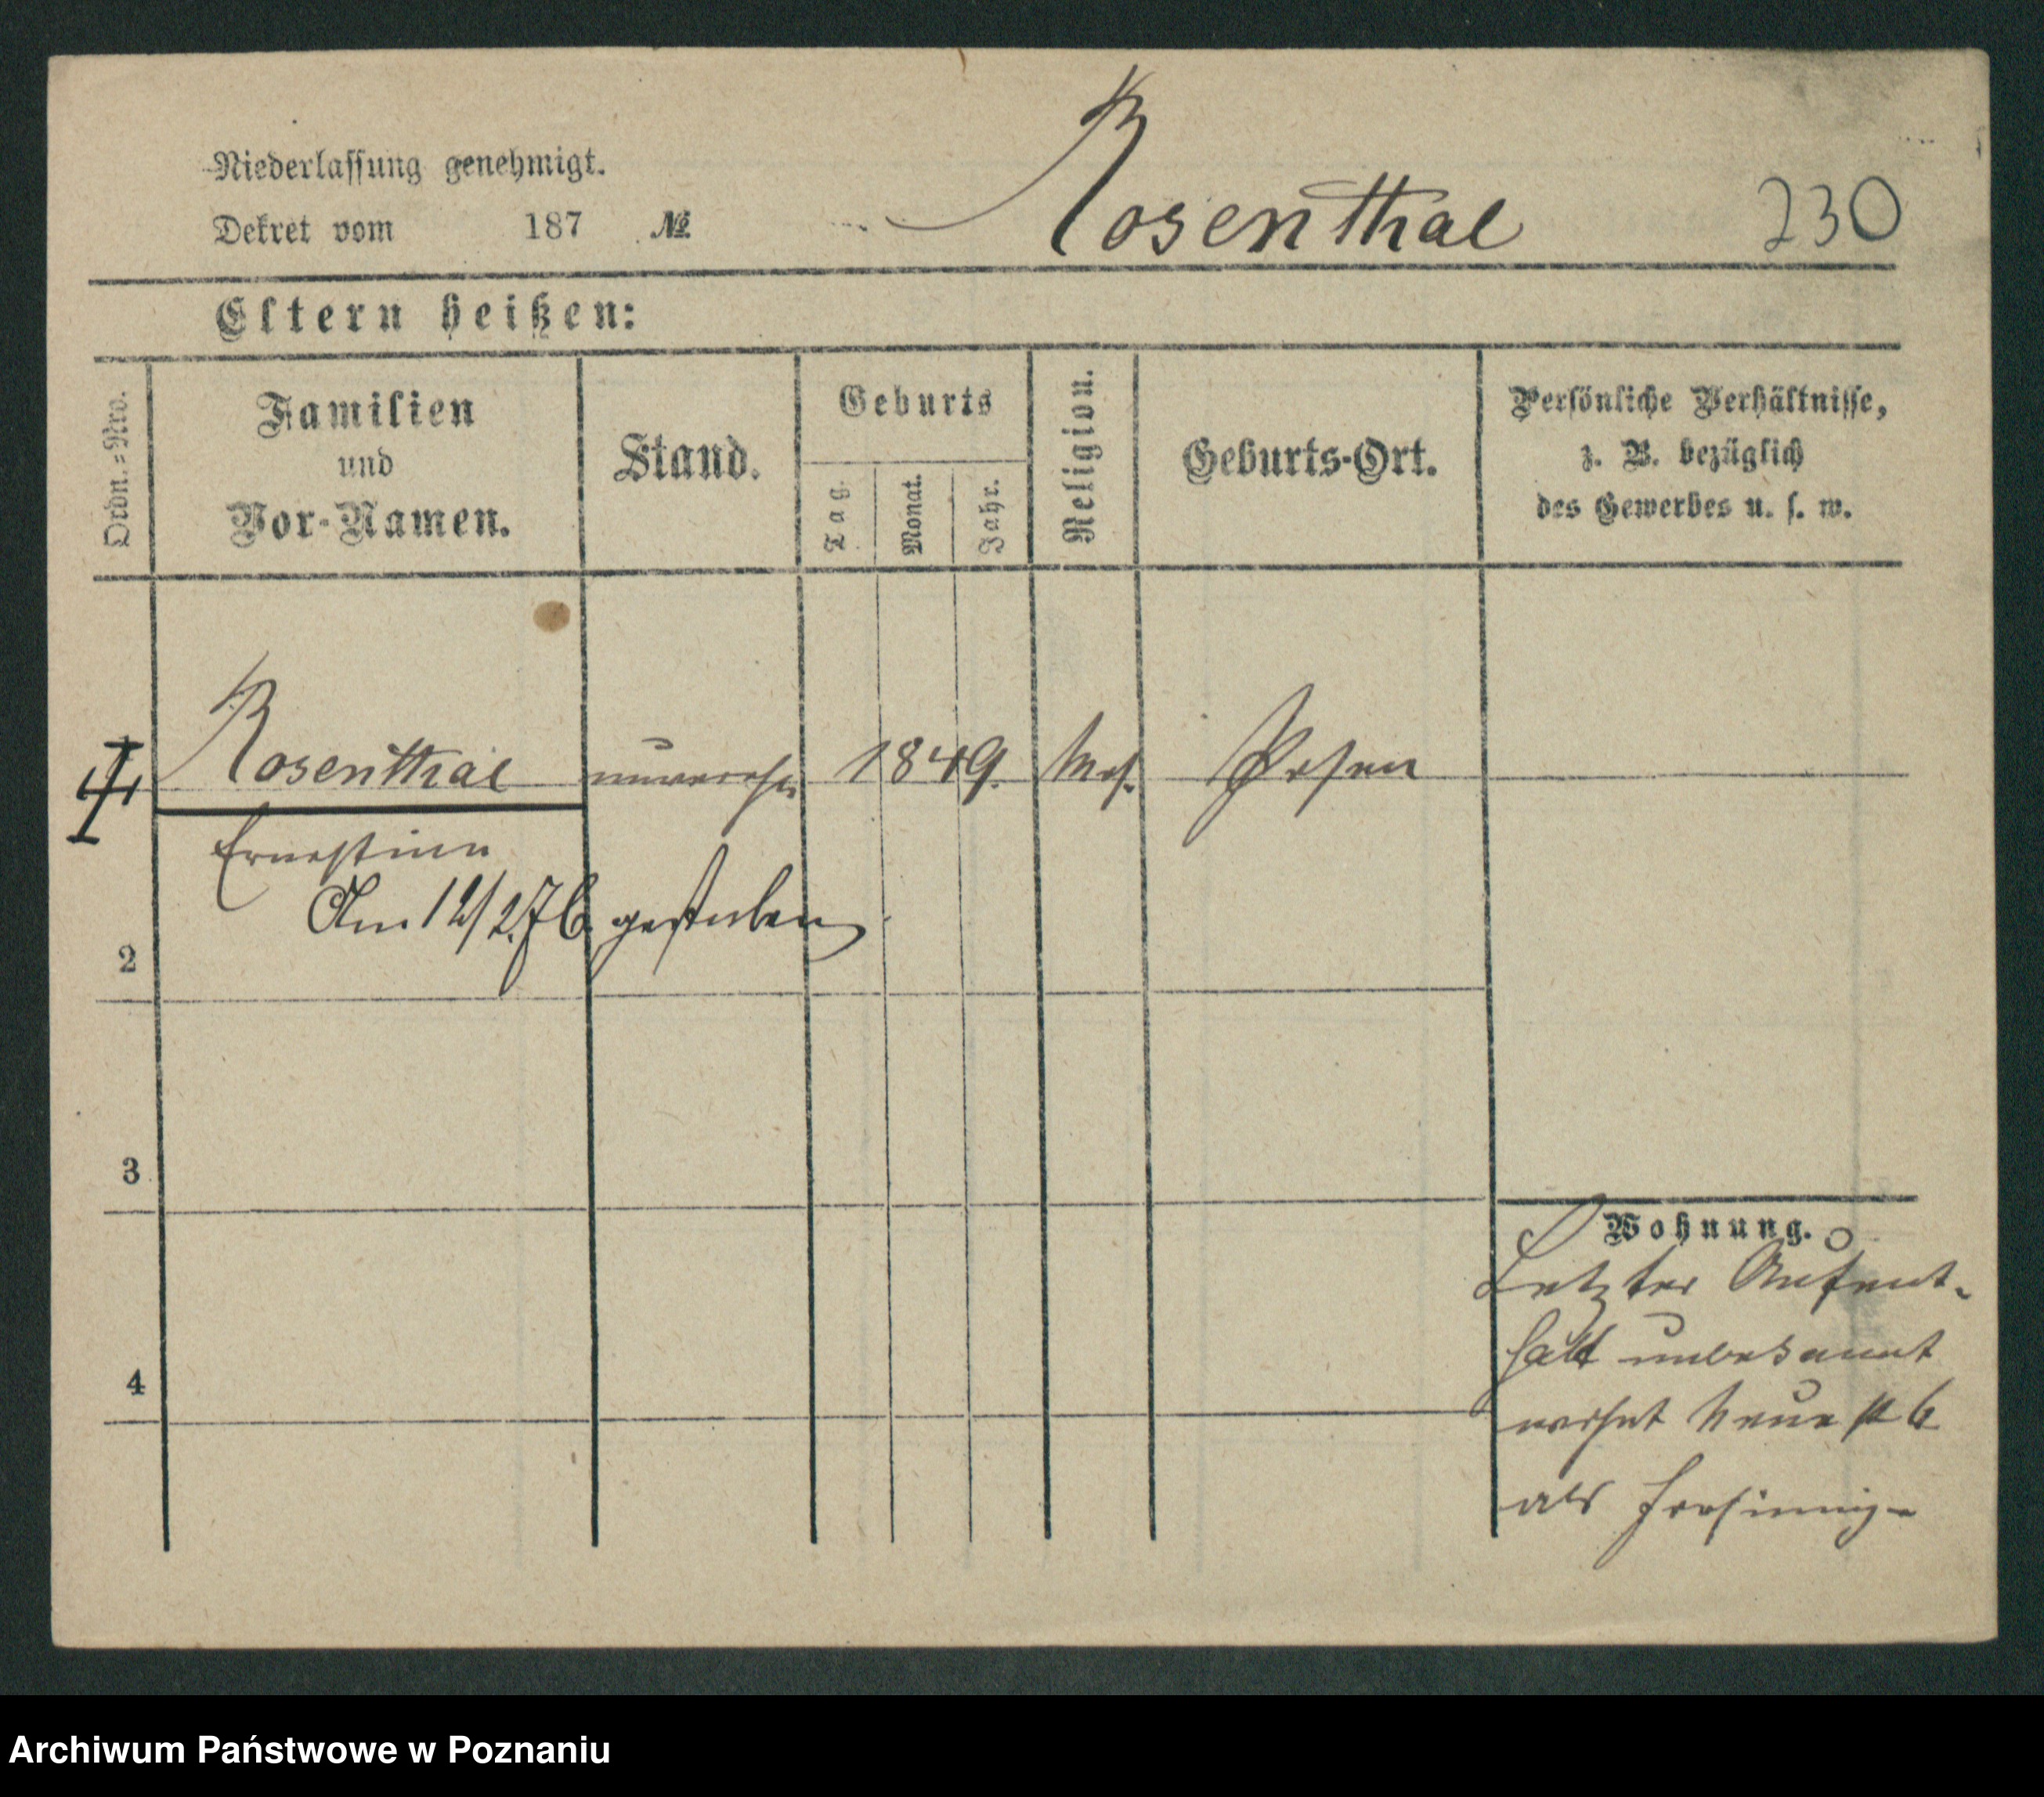 Niederlassung genehmigt.
Dekret vom 187 №
Rosenthal
230
Eltern heißen:
Ordn.-Nro.
Familien
und
Vor-Namen.
Stand.
Geburts
Tag.
Monat.
Jahr.
Religion.
Geburts-Ort.
Persönliche Verhältnisse,
z. B. bezüglich
des Gewerbes u. s. w.
Rosenthal 1849. Mos. Posen
Ernestine
Am 12/2.76. gestorben
2
3
4
Wohnung.
Letzter Aufent-
halt unbekannt
wohnt Neue
als
Archiwum Państwowe w Poznaniu